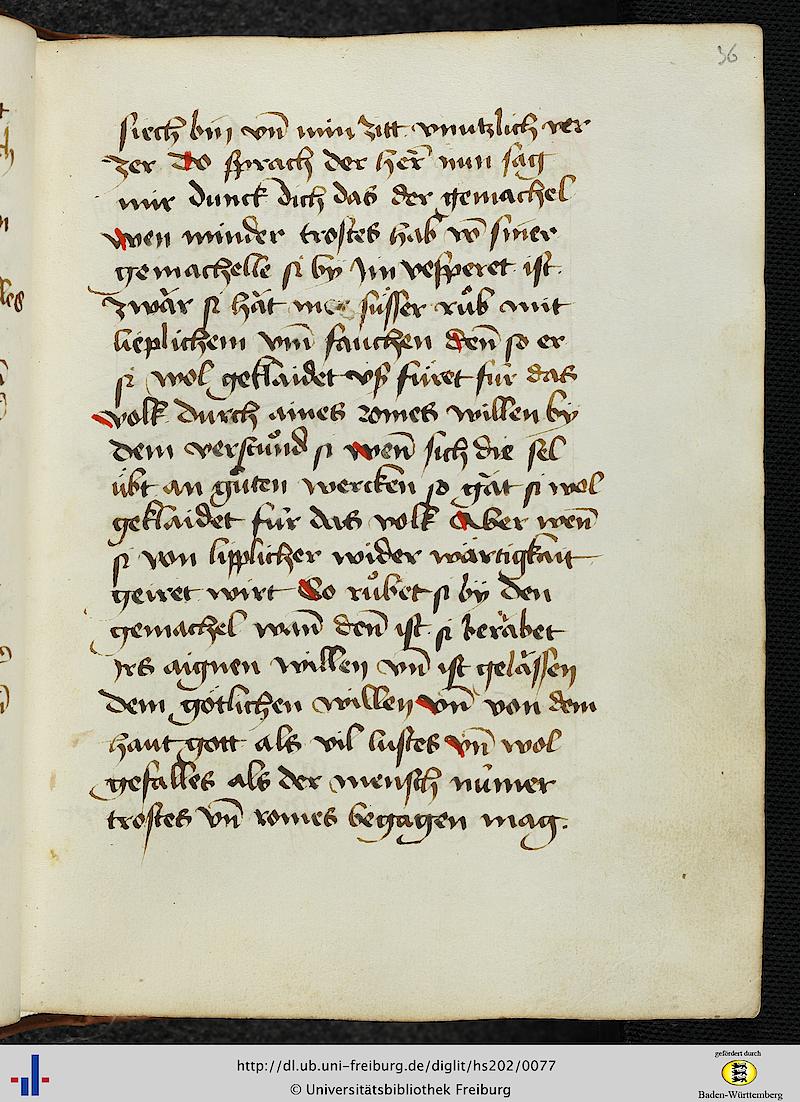 36
siech bin vn̄ min zitt vnnützlich ver
zer Do sprach der her̄ nun sag
mir dunck dich das der gemachel
wen minder trostes hab vō siner
gemachelle si by jm vesperet ist
zwār si hāt me süsser růb mit
lieplichem vm̄ fauchen den̄ so er
si wol geklaidet vß füret für das
volk durch aines romes willen by
dem verstůnd si wen̄ sich die sel
übt an gůten wercken so gāt si wol
geklaidet für das volk Aber wen̄
si von lipplicher wider wärtigkait
geiret wirt So růbet si by den
gemachel wan̄ den̄ ist si beräbet
jrs aignen willen vn̄ ist gelässen
dem götlichen willen vn̄ von dem
haut gott als vil lustes vn̄ wol
gefalles als der mensch nümer
trostes vn̄ romes begagen mag.
http://dl.ub.uni-freiburg.de/diglit/hs202/0077
© Universitätsbibliothek Freiburg
gefördert durch
Baden-Württemberg